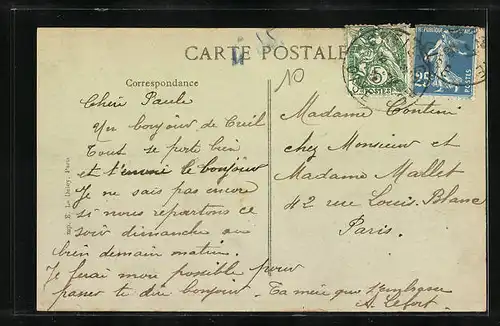 CARTE POSTALE
Correspondance
Chère Paule
Un bonjour de Creil
Tout se porte bien
et t'envoie le bonjour
Je ne sais pas encore
si nous repartons ce
soir dimanche ou
bien demain matin.
Je ferai mon possible pour
passer te dire bonjour. Ta mère que t'embrasse
A. Lefort.
10
REPUBLIQUE
25
POSTES
5
Madame Contini
chez Monsieur et
Madame Mallet
42 rue Louis Blanc
Paris.
E. Le Deley, Paris